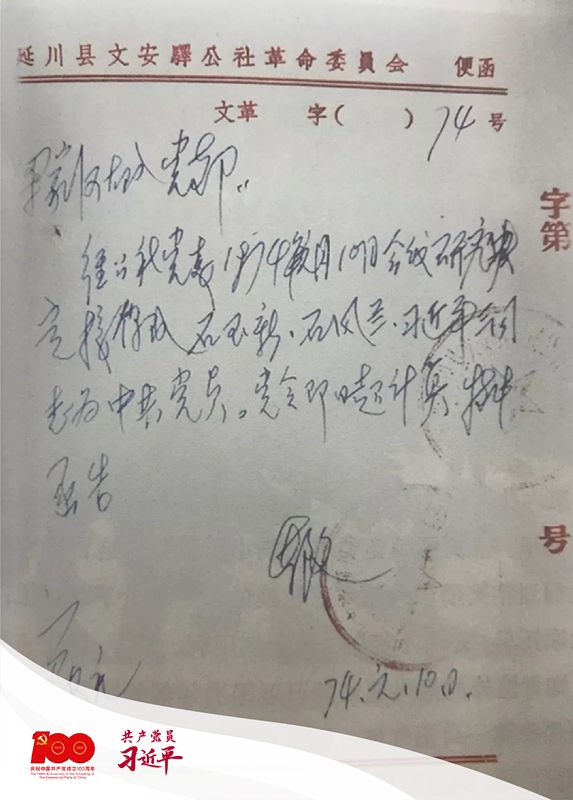 延川县文安驛公社革命委員会 便函
文革 字( ) 74 号
党部
字第
经公社党委1974年月10日会议研究决
定接 石玉新、石凤兰、习近平 同
志为中共党员。党令即日起计算,特此
函告
号
74.元.10日.
100
庆祝中国共产党成立100周年
The 100th Anniversary of the Founding of
the Communist Party of China
共产党员
习近平